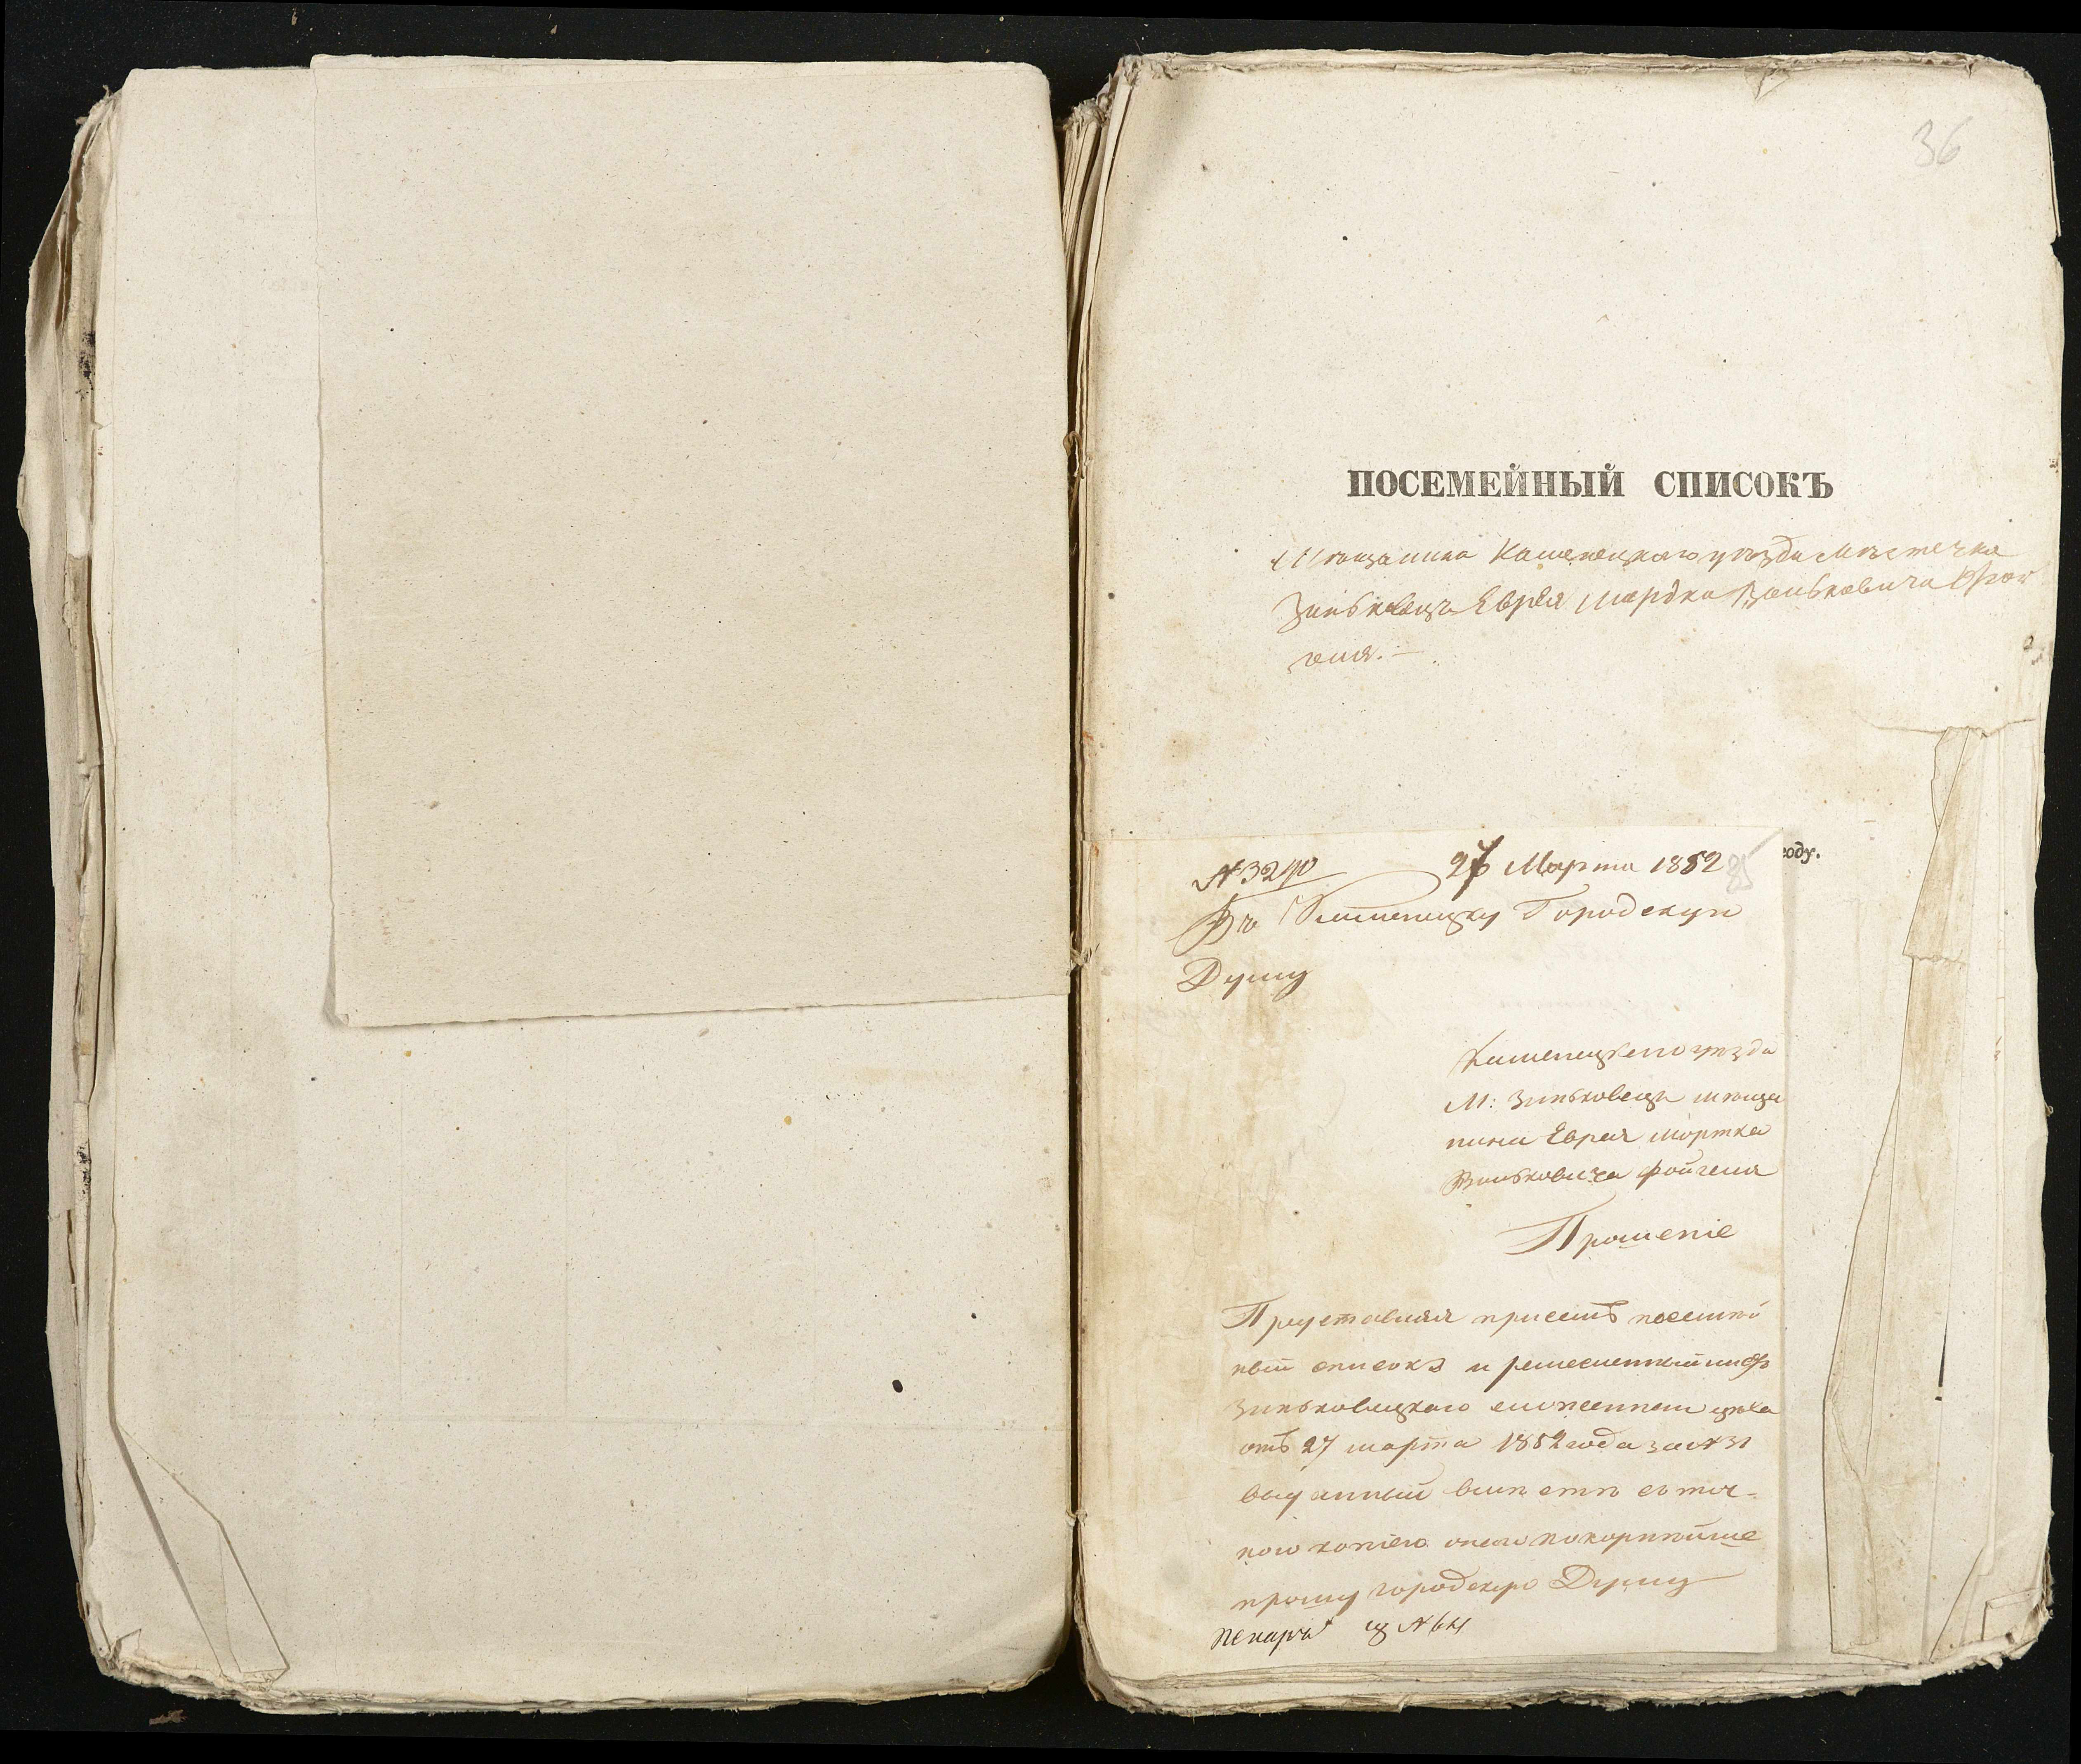 36
ПОСЕМЕЙНЫЙ СПИСОКЪ
Мѣщанина Каменецкаго уѣзда мѣстечка
Зинькѡвецъ Еврея Мордка Вольковича Фой
геля. —
году.
№ 3290 27 Марта 1852 35
Въ Каменецку Городскую
Думу
Каменецкого уѣзда
М: Зиньковецъ мѣща
нина Еврея Мортка
Вольковича Фойгеля
Прошеніе
Представляя присемъ посемѣй
ный списокъ и ремесленный
Зиньковецкаго цѣха
отъ 27 марта 1852 года за № 31
выданный вмѣстѣ съ точ-
ною копіею оного покорнѣйше
прошу городскую Думу
пекарь № 64